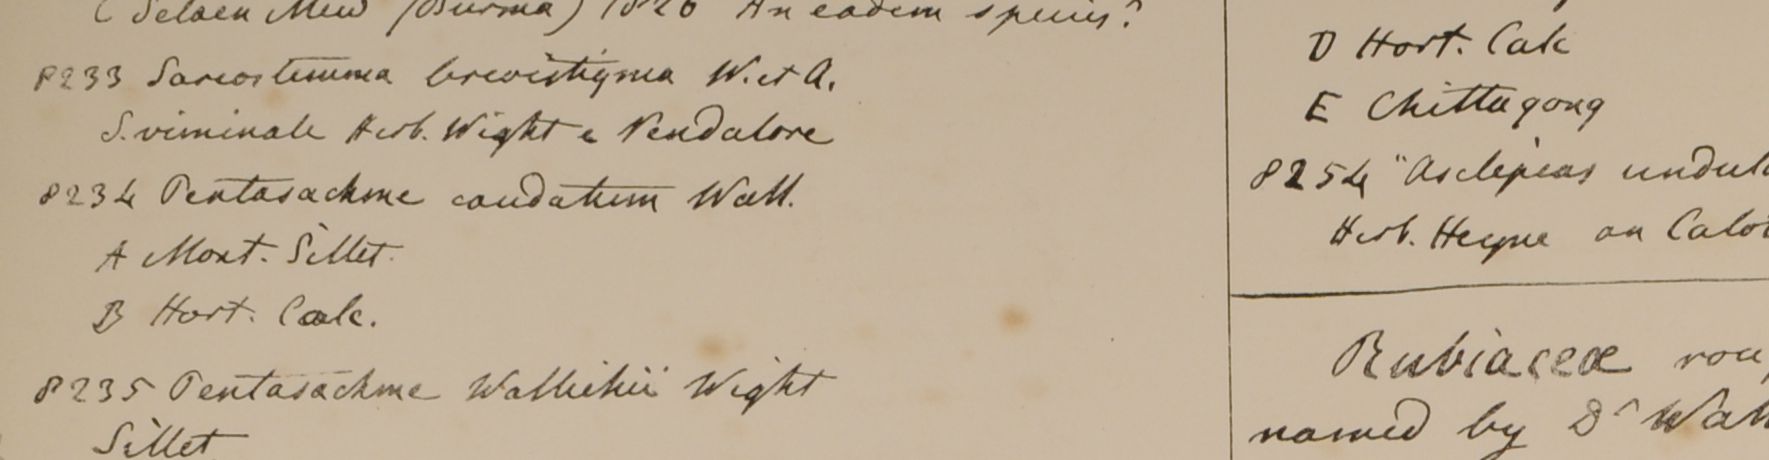 C Selaen Mew (Burma) 1826 An eadem species?
8233 Sarcostemma brevistigma W. et A.
S. viminale Herb. Wight e Vendalore
8234 Pentasachme caudatum Wall.
A Mont. Sillet.
B Hort. Calc.
8235 Pentasachme Wallichii Wight
Sillet
D Hort. Calc
E Chittagong
8254 "Asclepias undul
Herb. Heyne an Calot
Rubiaceæ rou
named by Dr Wall